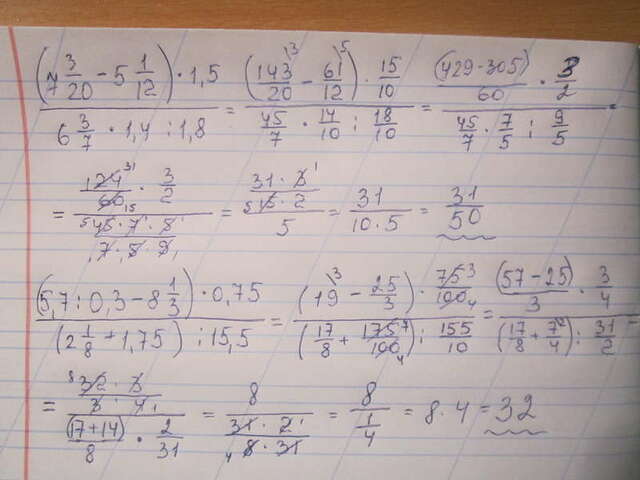 (7 3/20 - 5 1/12) · 1,5 / (6 3/7 · 1,4 : 1,8) = (143/20 \3 - 61/12 \5) · 15/10 / (45/7 · 14/10 : 18/10) = (429-305)/60 · 3/2 / (45/7 · 7/5 : 9/5) =
= 124 31/60 15 · 3/2 / (5 45 · 7 · 5 1/1 7 · 5 · 9 1) = 31 · 3 1/5 15 · 2 / 5 = 31/10·5 = 31/50
(5,7 : 0,3 - 8 1/3) · 0,75 / (2 1/8 + 1,75) : 15,5 = (19 \3 - 25/3) · 75 3/100 4 / (17/8 + 175 7/100 4) : 155/10 = (57-25)/3 · 3/4 / (17/8 + 7 \2/4) : 31/2 =
= 8 32 · 3/3 · 4 1 / (17+14)/8 · 2/31 = 8 / 31 · 2 1/4 8 · 31 = 8 / 1/4 = 8 · 4 = 32